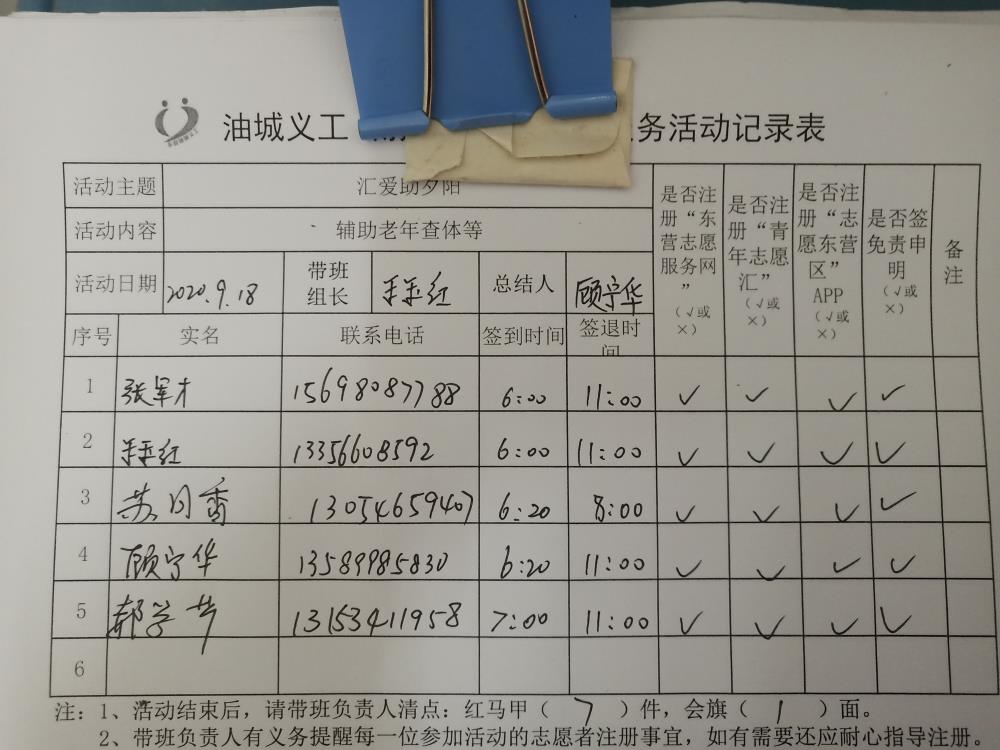 油城义工
务活动记录表
活动主题 汇爱助夕阳 是否注册“东营志愿服务网” （√或×） 是否注册“青年志愿汇” （√或×） 是否注册“志愿东营区”APP （√或×） 是否签免责申明 （√或×） 备注
活动内容 辅助老年查体等
活动日期 2020.9.18 带班组长 红 总结人 顾宁华
序号 实名 联系电话 签到时间 签退时间
1 张军才 15698087788 6:00 11:00 ✓ ✓ ✓ ✓
2 红 13356608592 6:00 11:00 ✓ ✓ ✓ ✓
3 苏月香 13054659407 6:20 8:00 ✓ ✓ ✓ ✓
4 顾宁华 13589985830 6:20 11:00 ✓ ✓ ✓ ✓
5 郝学 13153411958 7:00 11:00 ✓ ✓ ✓ ✓
6
注：1、活动结束后，请带班负责人清点：红马甲（ 7 ）件，会旗（ 1 ）面。
2、带班负责人有义务提醒每一位参加活动的志愿者注册事宜，如有需要还应耐心指导注册。